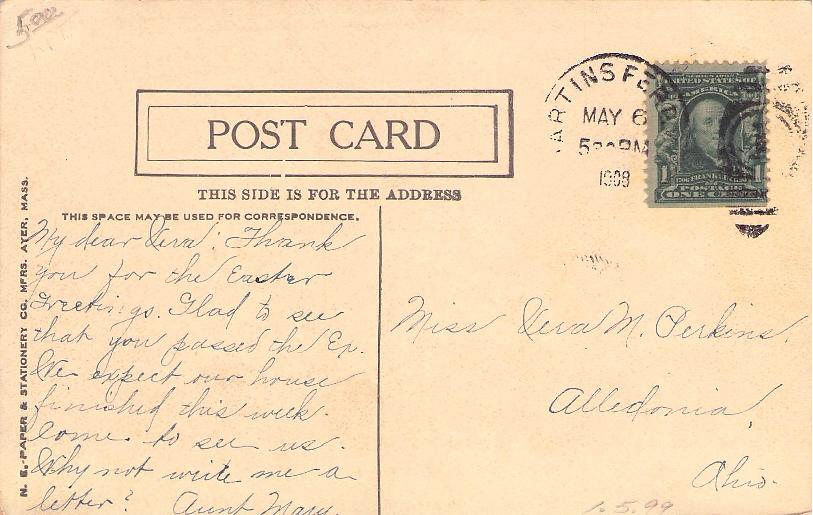 5.00
ARTINS FER
MAY 6
PM
1908
SERIES 1902
UNITED STATES OF
AMERICA
FRANKLIN
1 1
POSTAGE
ONE
POST CARD
THIS SIDE IS FOR THE ADDRESS
THIS SPACE MAY BE USED FOR CORRESPONDENCE.
N. E. PAPER & STATIONERY CO. MFRS. AYER, MASS.
My dear Vera: Thank
you for the Easter
Greetings. Glad to see
that you passed the Ex.
We expect our house
finished this week.
Come to see us.
Why not write me a
letter? Aunt Mary.
Miss Vera M. Perkins.
Alledonia,
Ohio.
1.5.99